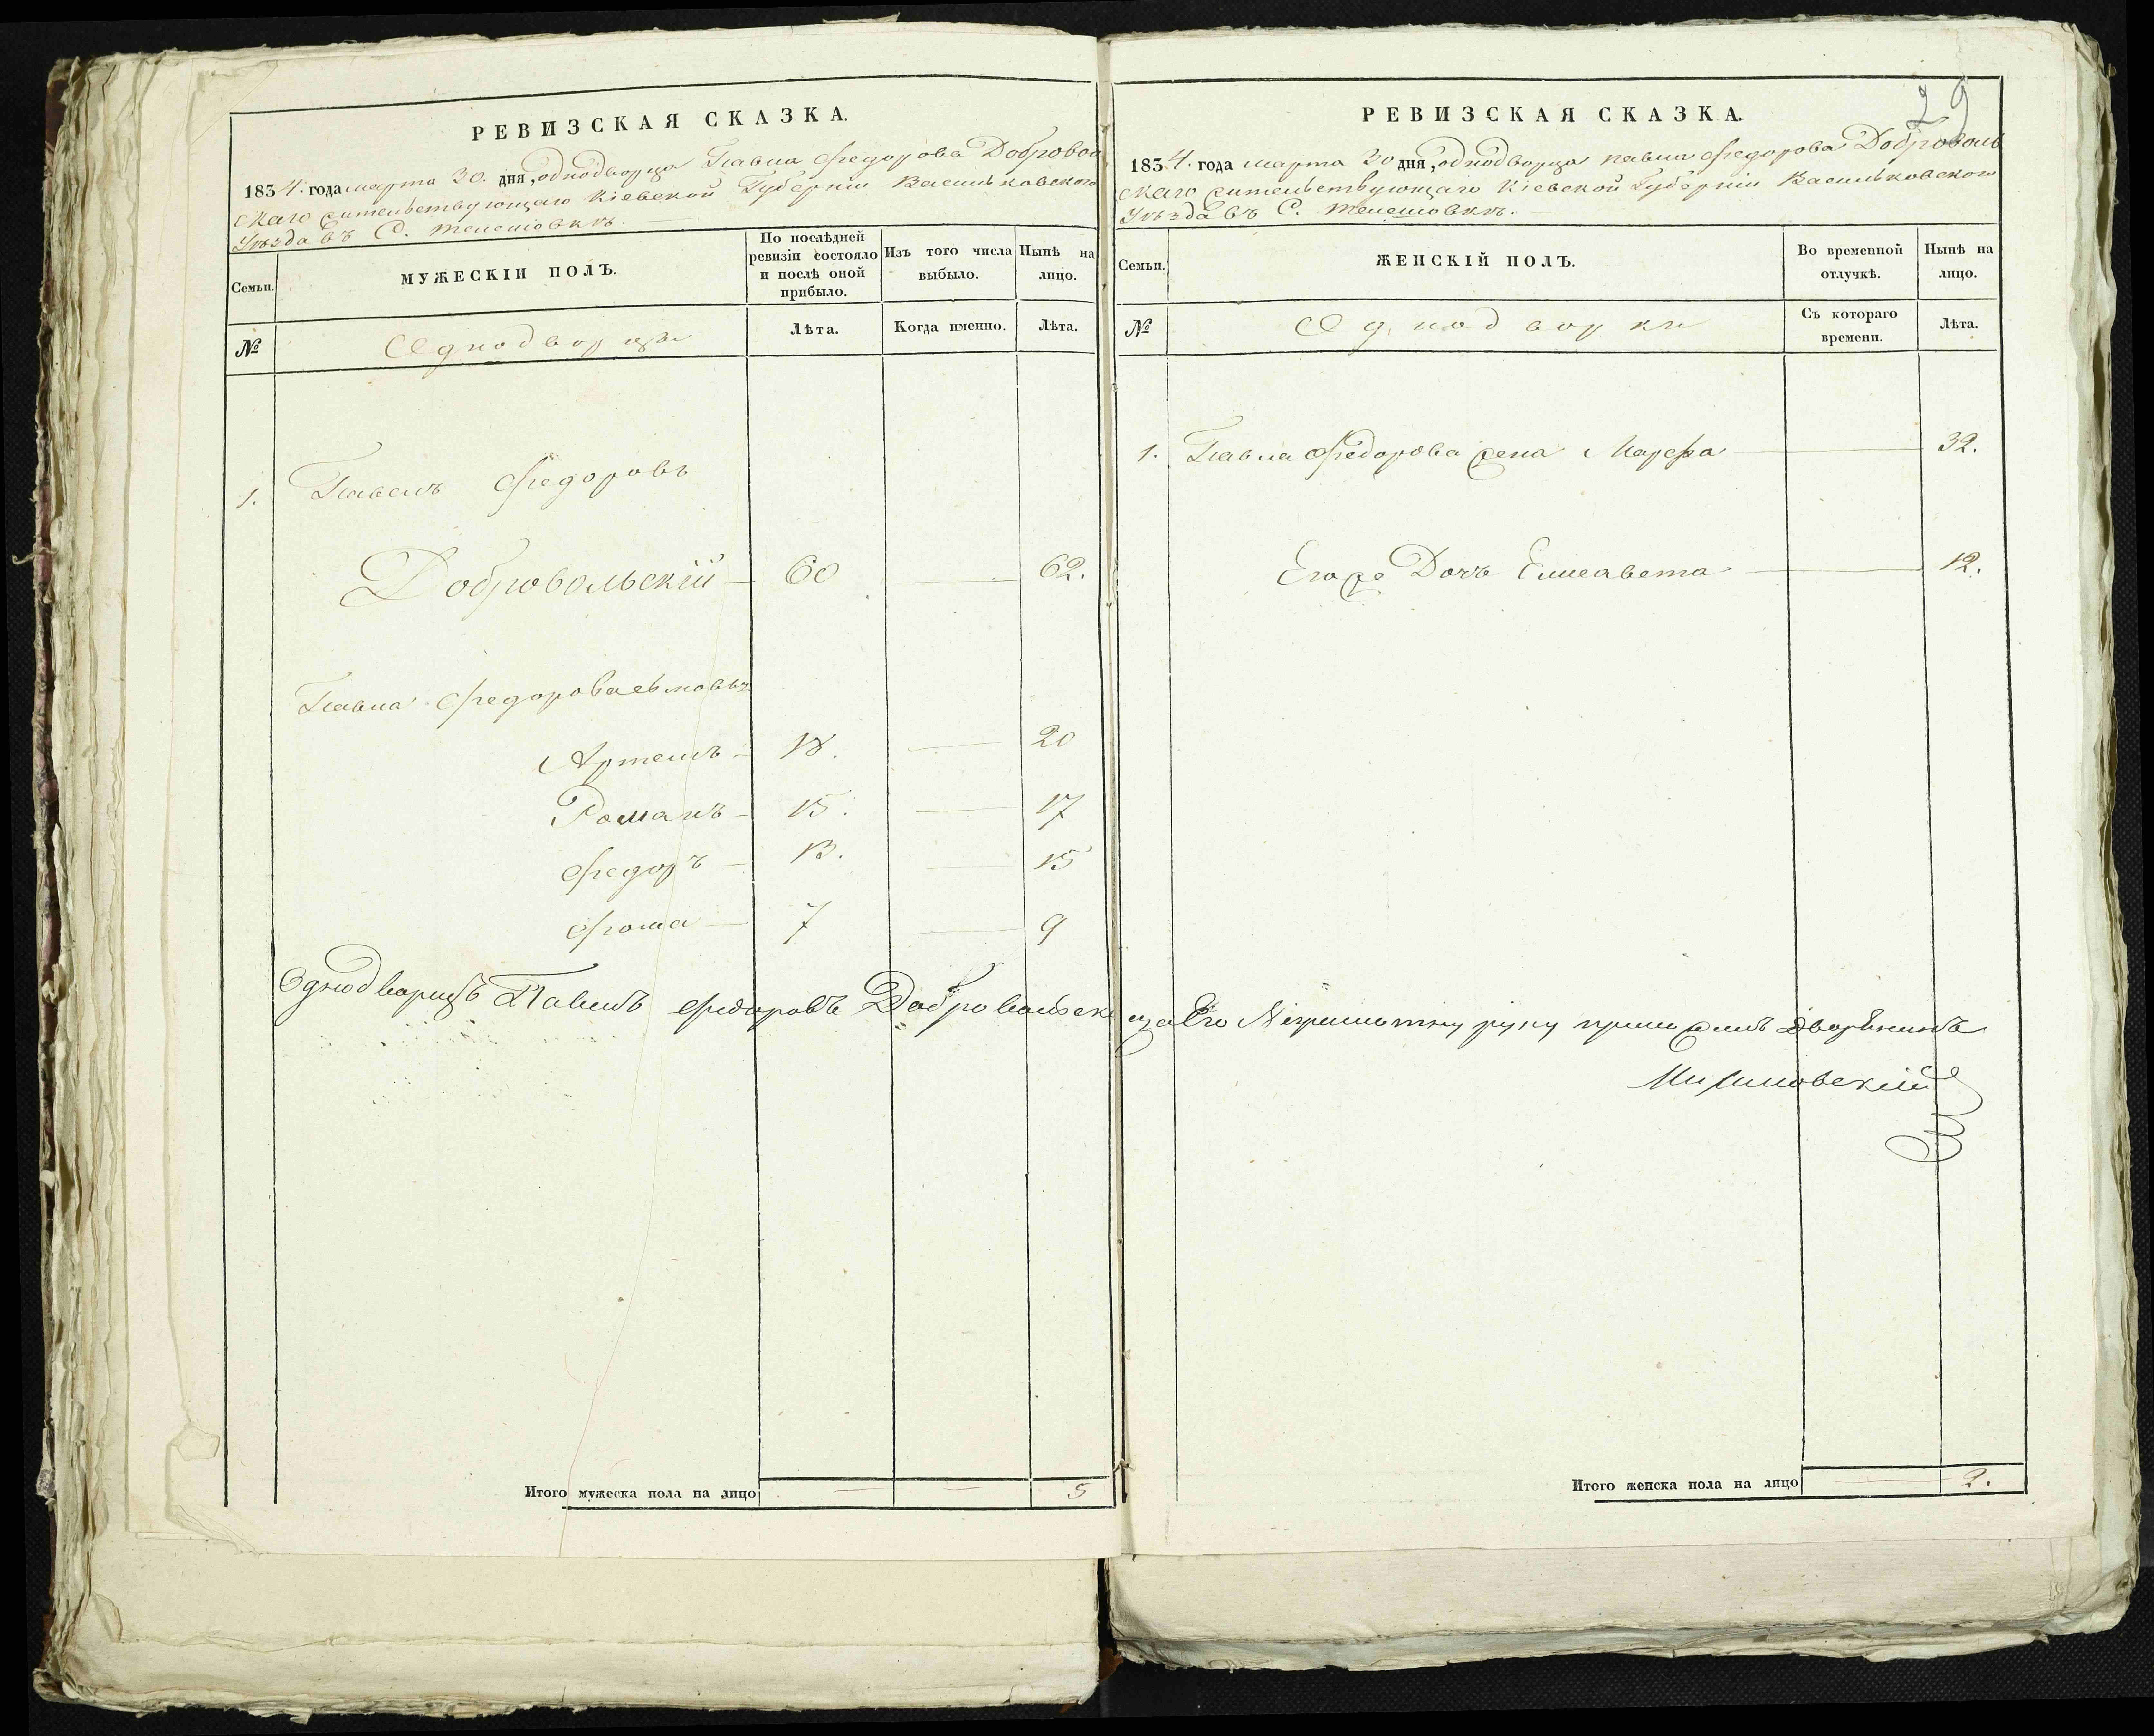 РЕВИЗСКАЯ СКАЗКА.
1834. года марта 30. дня, однодворца Павла Федорова Добровол
скаго жительствующаго Кіевской Губерніи Васильковского
Уѣзда въ С. телешовкѣ.
Семьи.
МУЖЕСКІИ ПОЛЪ.
По послѣдней ревизіи состояло и послѣ оной прибыло.
Изъ того числа выбыло.
Нынѣ на лицо.
№
Однодворцы
Лѣта.
Когда именно.
Лѣта.
1. Павелъ Федоровъ
Добровольскій — 60 — 62.
Павла Федорова сыновья
Артемъ — 18. — 20
Романъ — 15. — 17
Федоръ — 13. — 15
Фома — 7 — 9
Итого мужеска пола на лицо — — 5
29
РЕВИЗСКАЯ СКАЗКА.
1834. года марта 30 дня, однодворца павла Федорова Доброволь
скаго жительствующаго Кіевской Губерніи Васильковского
Уѣзда въ С. телешовкѣ. —
Семьи.
ЖЕНСКІЙ ПОЛЪ.
Во временной отлучкѣ.
Нынѣ на лицо.
№
Однодворки
Съ котораго времени.
Лѣта.
1. Павла Федорова жена Марфа — 32.
Егоже Дочь Елисавета — 12.
Однодворицъ Павелъ Федоровъ Добровольски заЕго Неграмотну руку приложилъ Дворянинъ
Итого женска пола на лицо — 2.